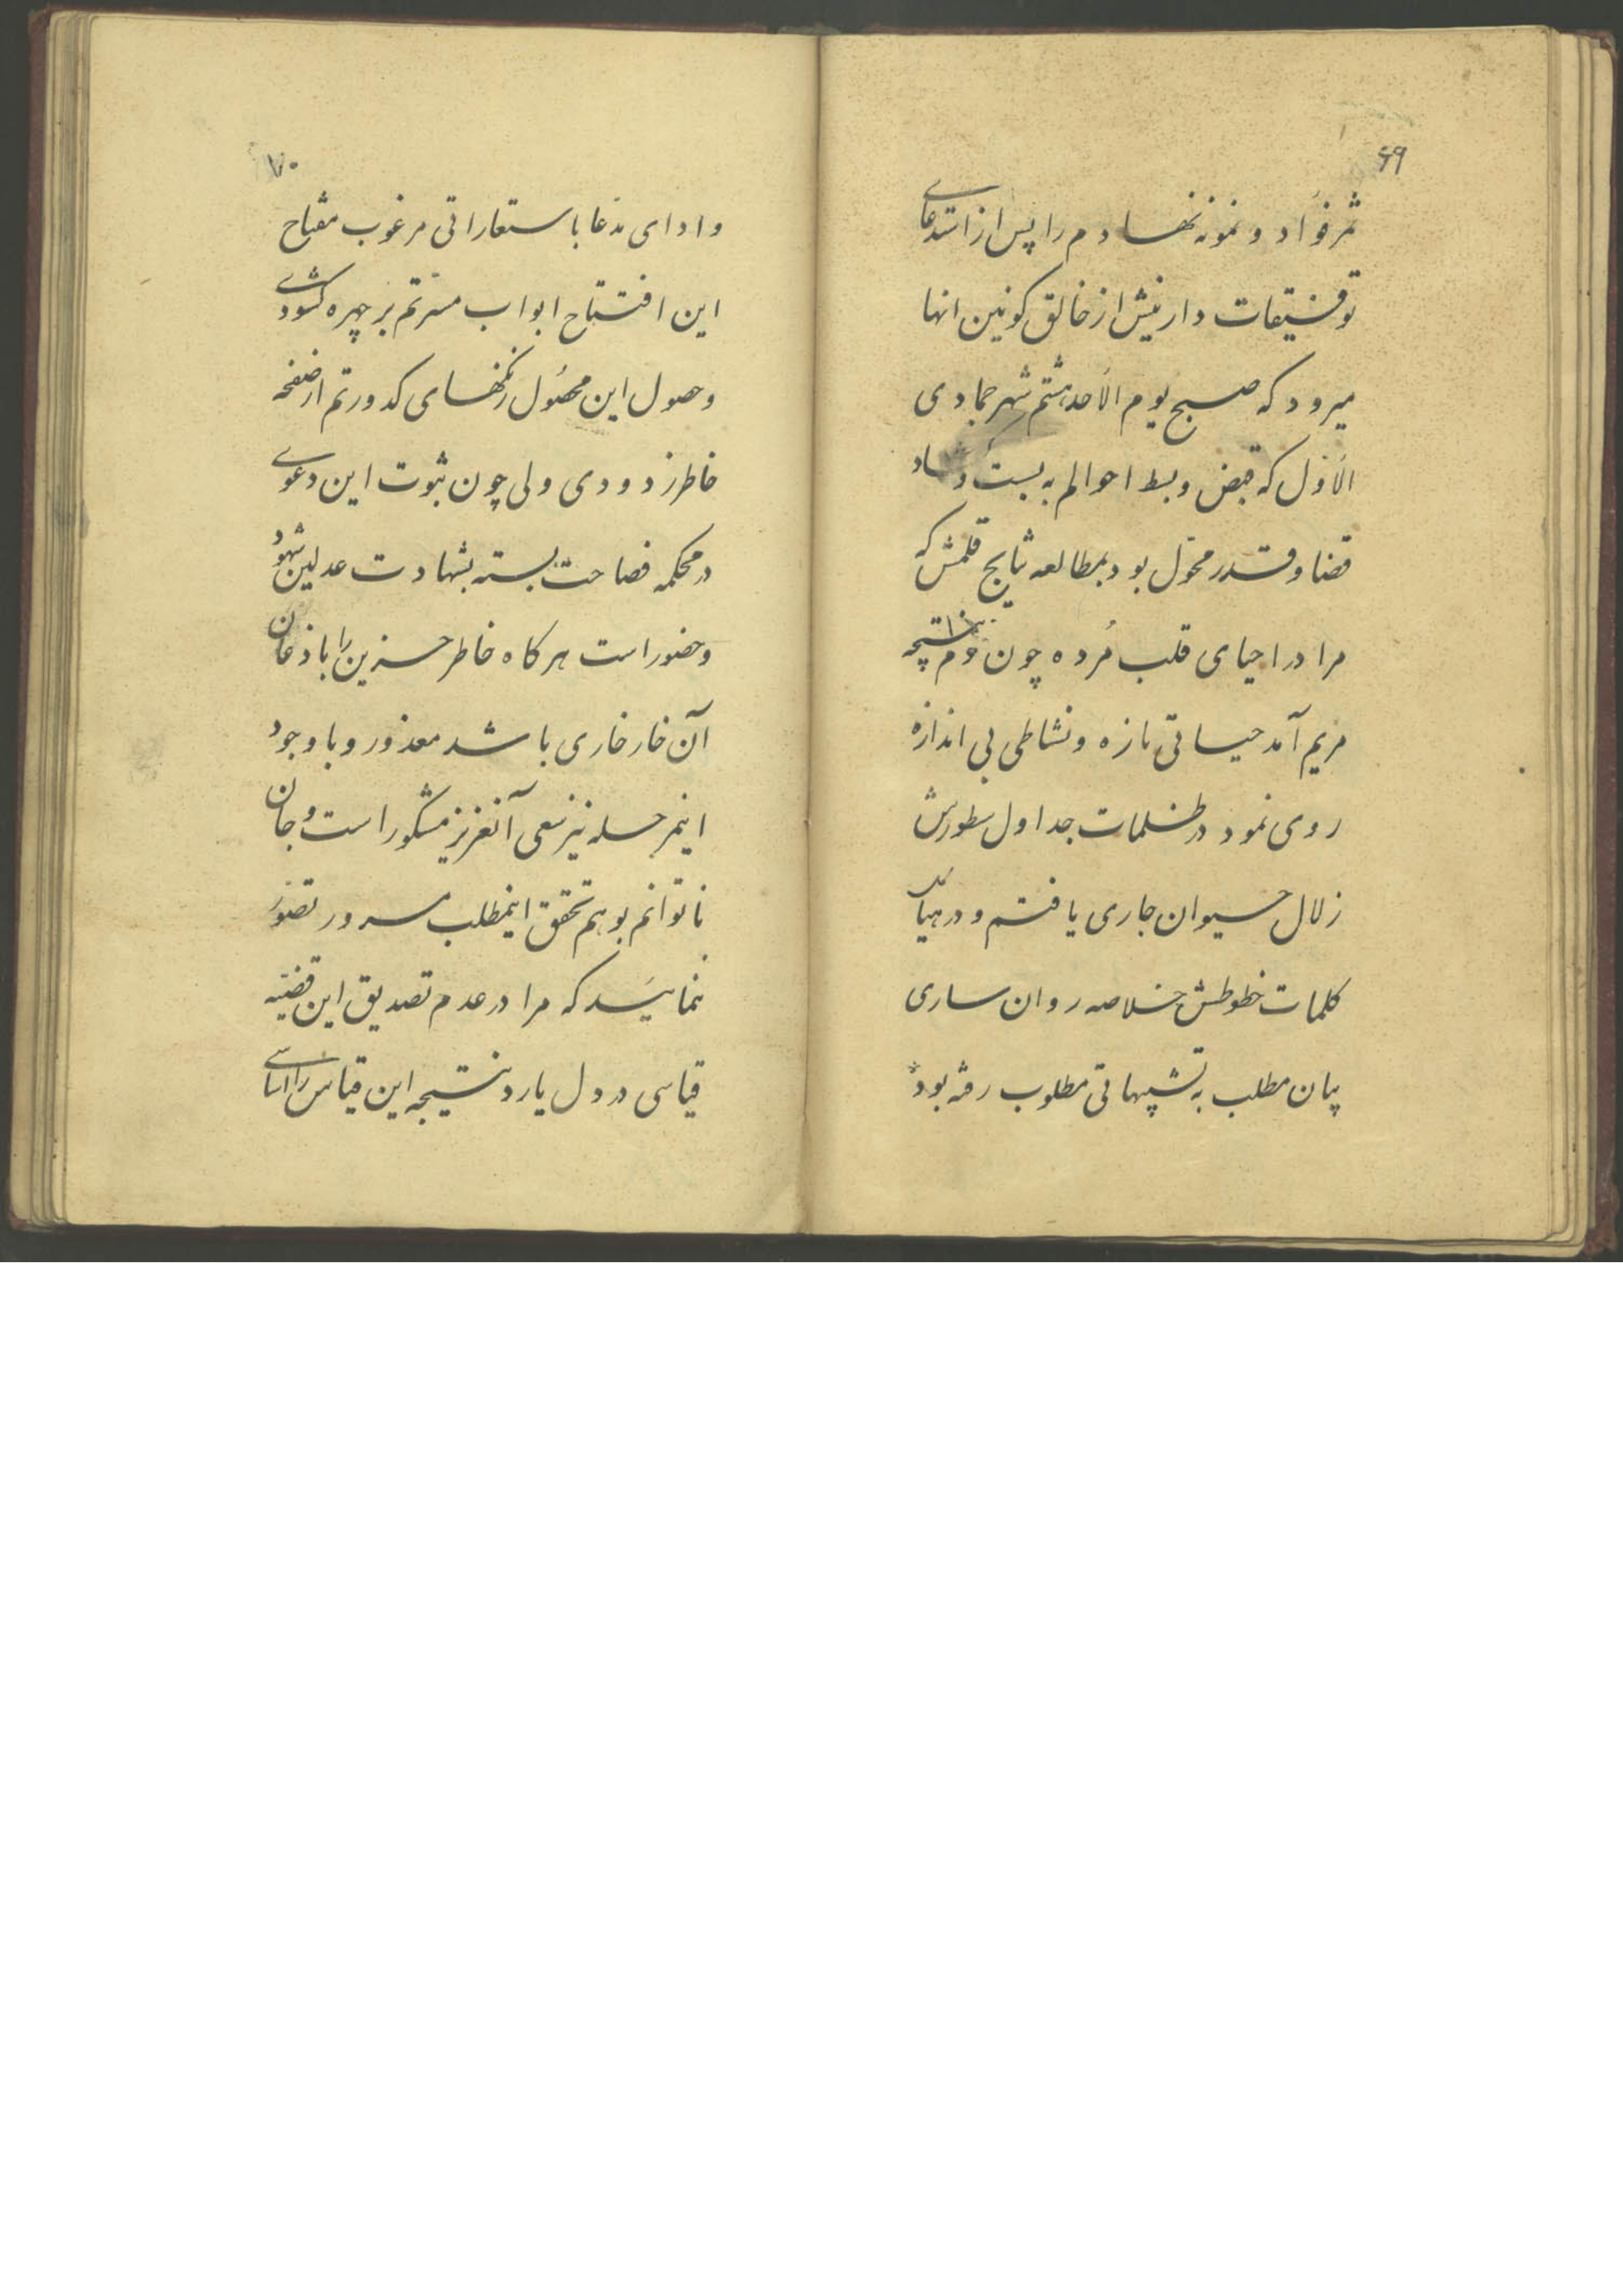 ۶۹
ثمر فؤاد و نمونه نهادم را پس از استدعای
توفیقات دارینش از خالق کونین انها
میرود که صبح یوم الاحد هشتم شهر جمادی
الاول که قبض و بسط احوالم به بست و گشاد
قضا و قدر محوّل بود بمطالعه نتایج قلمش که
مرا در احیای قلب مُرده چون دم نتیجه
مریم آمد حیاتی تازه و نشاطی بی اندازه
روی نمود در ظلمات جداول سطورش
زلال حیوان جاری یافتم و در هیاکل
کلمات خطوطش خلاصه روان ساری
بیان مطلب به تشبیهاتی مطلوب رفته بود
۷۰
و ادای مدّعا باستعاراتی مرغوب مفتاح
این افتتاح ابواب مسرّتم بر چهره گشودی
وحصول این محصُول زنگهای کدورتم از صفحه
خاطر زدودی ولی چون ثبوت این دعوی
در محکمه فصاحت بسته بشهادت عدلین شهود
وحضور است هرکاه خاطر حزین را با اذعان
آن خارخاری باشد معذور و با وجود
اینمرحله نیز سعی آنعزیز مشکور است و جان
ناتوانم بوهم تحقق اینمطلب مسرور تصوّر
ننمائید که مرا در عدم تصدیق این قضیّه
قیاسی در دل یا رد نتیجه این قیاس را اساسی